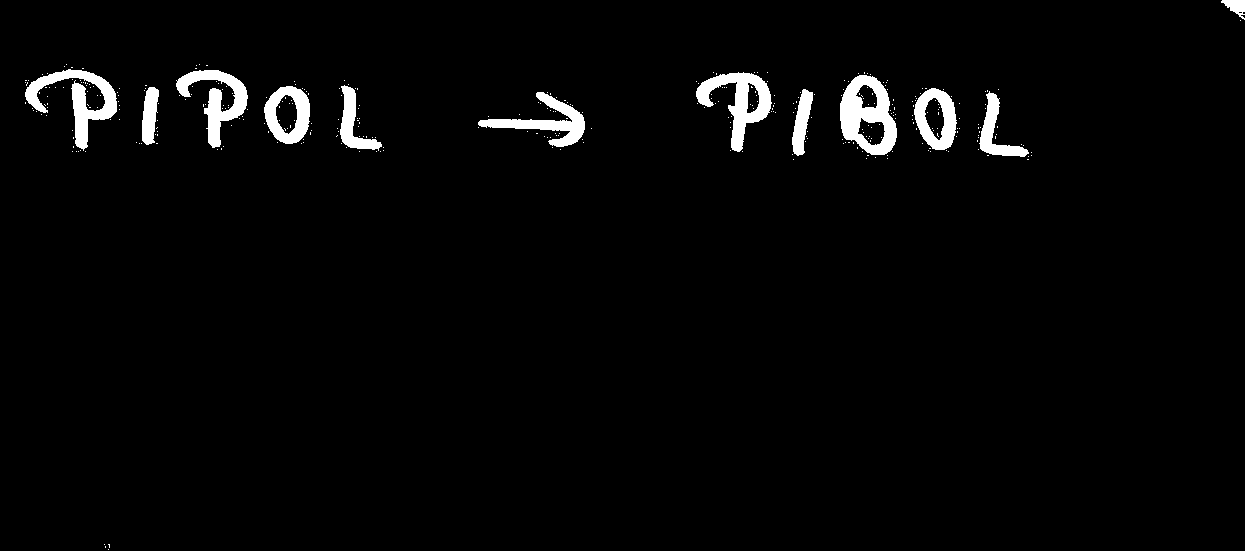 PIPOL → PIBOL